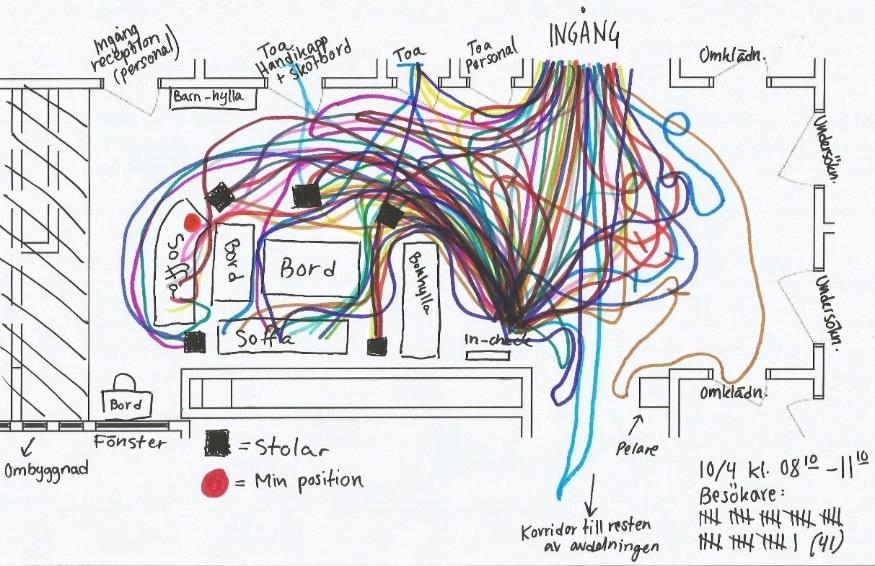 Ingång
reception
(personal)
Toa
Handikapp
+ skötbord
Toa
Toa
Personal
INGÅNG
Omklädn.
Barn-hylla
Undersökn.
Soffa
Bord
Bord
Bokhylla
Undersökn.
Soffa
In-check
Omklädn.
Bord
Fönster
Ombyggnad
= Stolar
= Min position
Pelare
Korridor till resten
av avdelningen
10/4 kl. 08¹⁰ - 11¹⁰
Besökare:
(41)